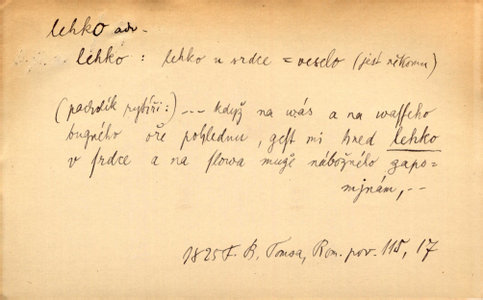 lehko adv.
lehko : lehko u srdce = veselo (jest někomu)
(pacholík rytíři:) -- když na wás a na wasseho
bugného oře pohlednu, gest mi hned lehko
v srdce a na slowa muže nábožného zapo-
mjnám, --
1825 F. B. Tomsa, Rom. pov. 115, 17